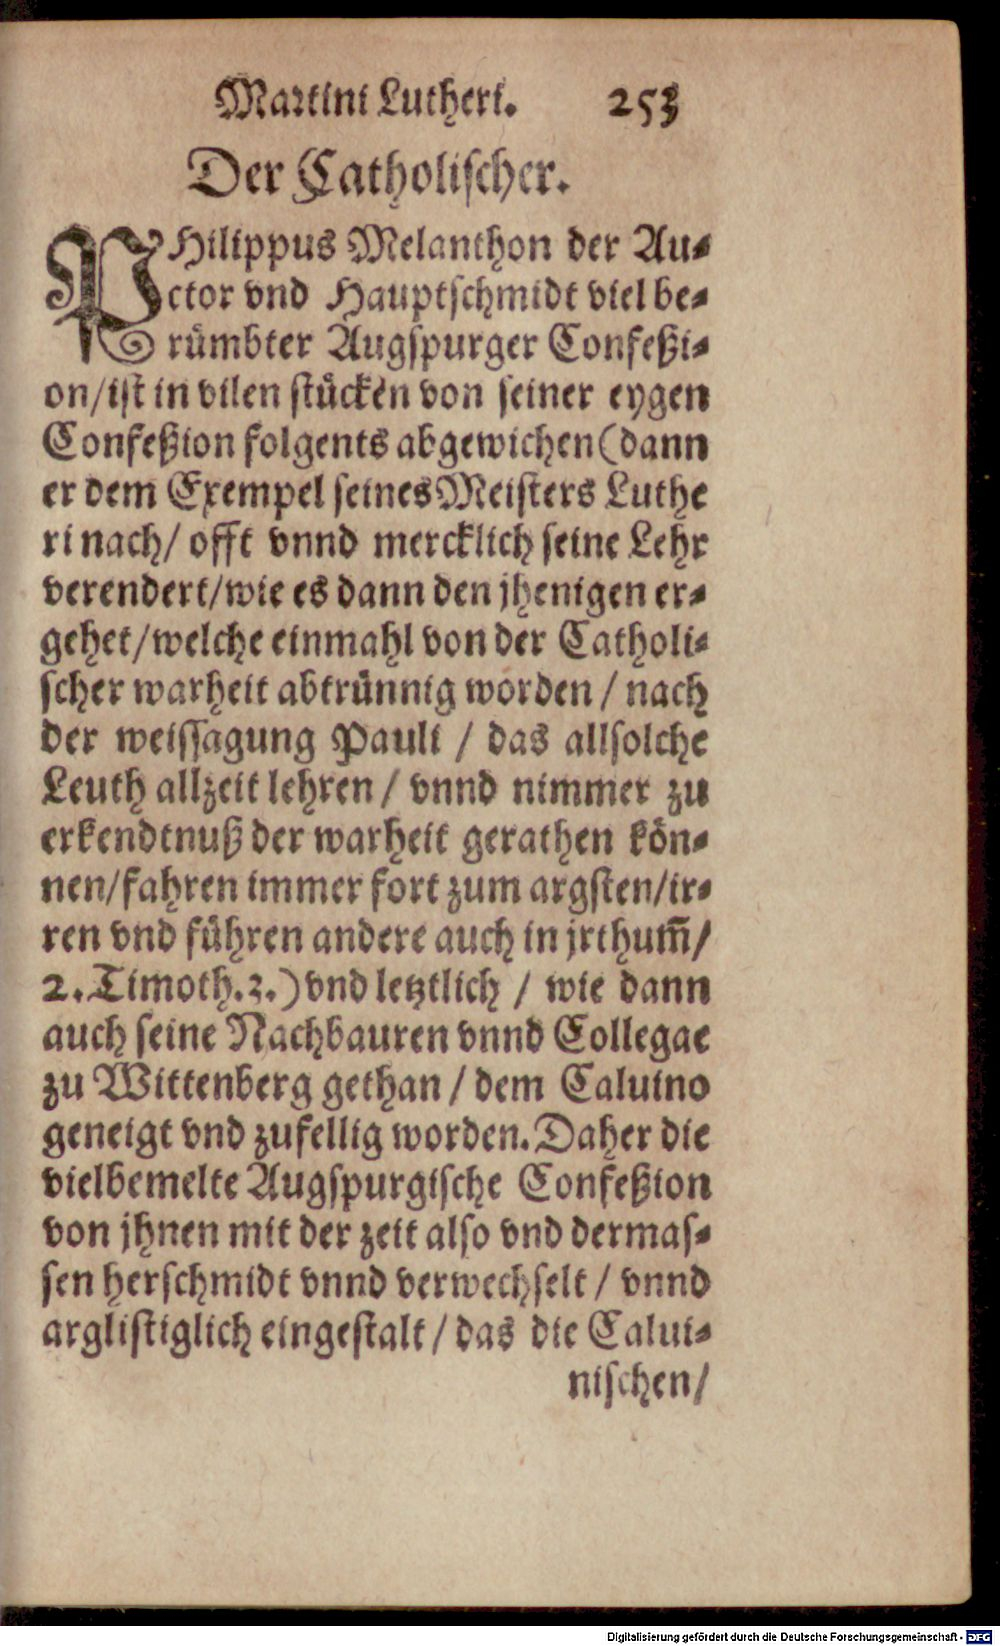 Martini Lutheri. 253
Der Catholischer.
PHilippus Melanthon der Au-
ctor vnd Hauptschmidt viel be-
rümbter Augspurger Confeßi-
on/ist in vilen stücken von seiner eygen
Confeßion folgents abgewichen (dann
er dem Exempel seines Meisters Luthe
ri nach/ offt vnnd mercklich seine Lehr
verendert/wie es dann den jhenigen er-
gehet/welche einmahl von der Catholi-
scher warheit abtrünnig worden / nach
der weissagung Pauli / das allsolche
Leuth allzeit lehren / vnnd nimmer zu
erkendtnuß der warheit gerathen kön-
nen/fahren immer fort zum argsten/ir-
ren vnd führen andere auch in jrthum̃/
2. Timoth. 3.) vnd letztlich / wie dann
auch seine Nachbauren vnnd Collegae
zu Wittenberg gethan / dem Caluino
geneigt vnd zufellig worden. Daher die
vielbemelte Augspurgische Confeßion
von jhnen mit der zeit also vnd dermas-
sen herschmidt vnnd verwechselt / vnnd
arglistiglich eingestalt / das die Calui-
nischen/
Digitalisierung gefördert durch die Deutsche Forschungsgemeinschaft - DFG